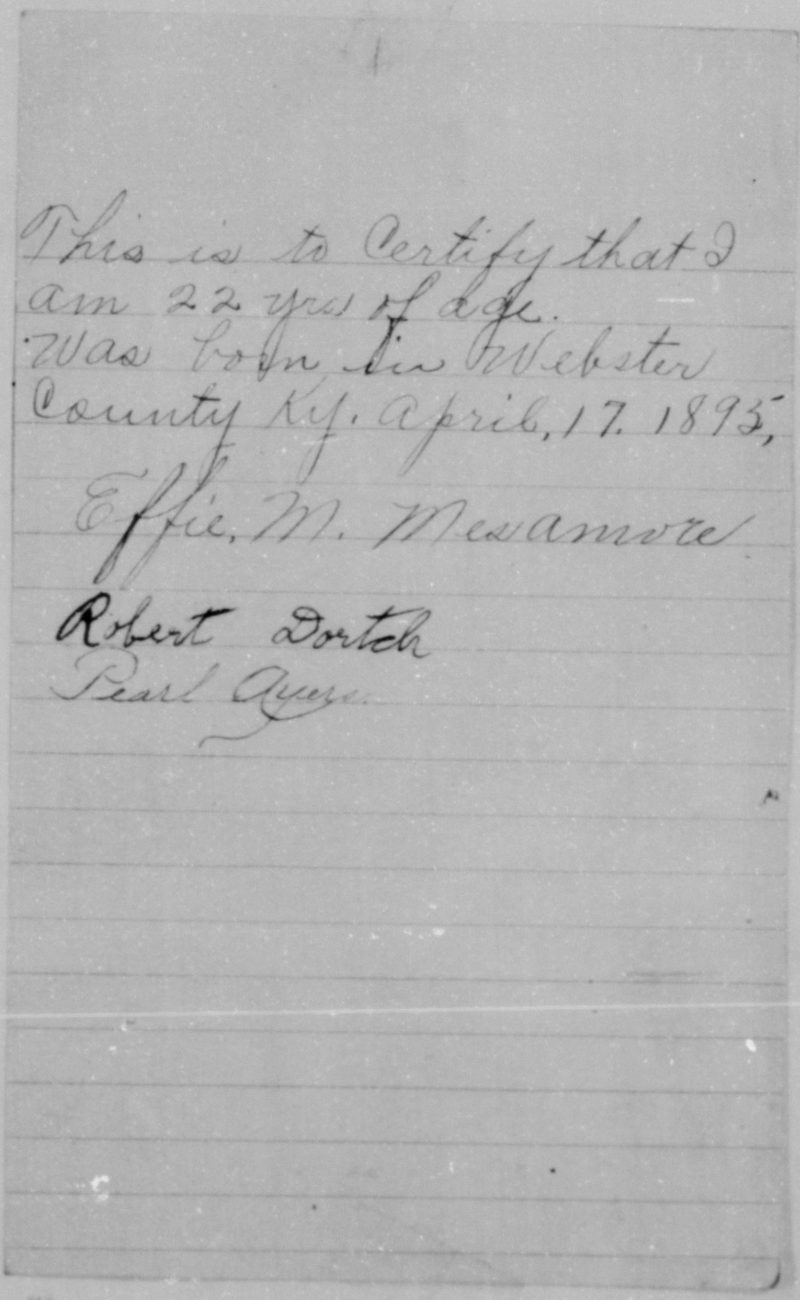 This is to Certify that I
am 22 yrs of age.
Was born in Webster
County Ky. April, 17. 1895,
Effie. M. Mesamore
Robert Dortch
Pearl Ayers.